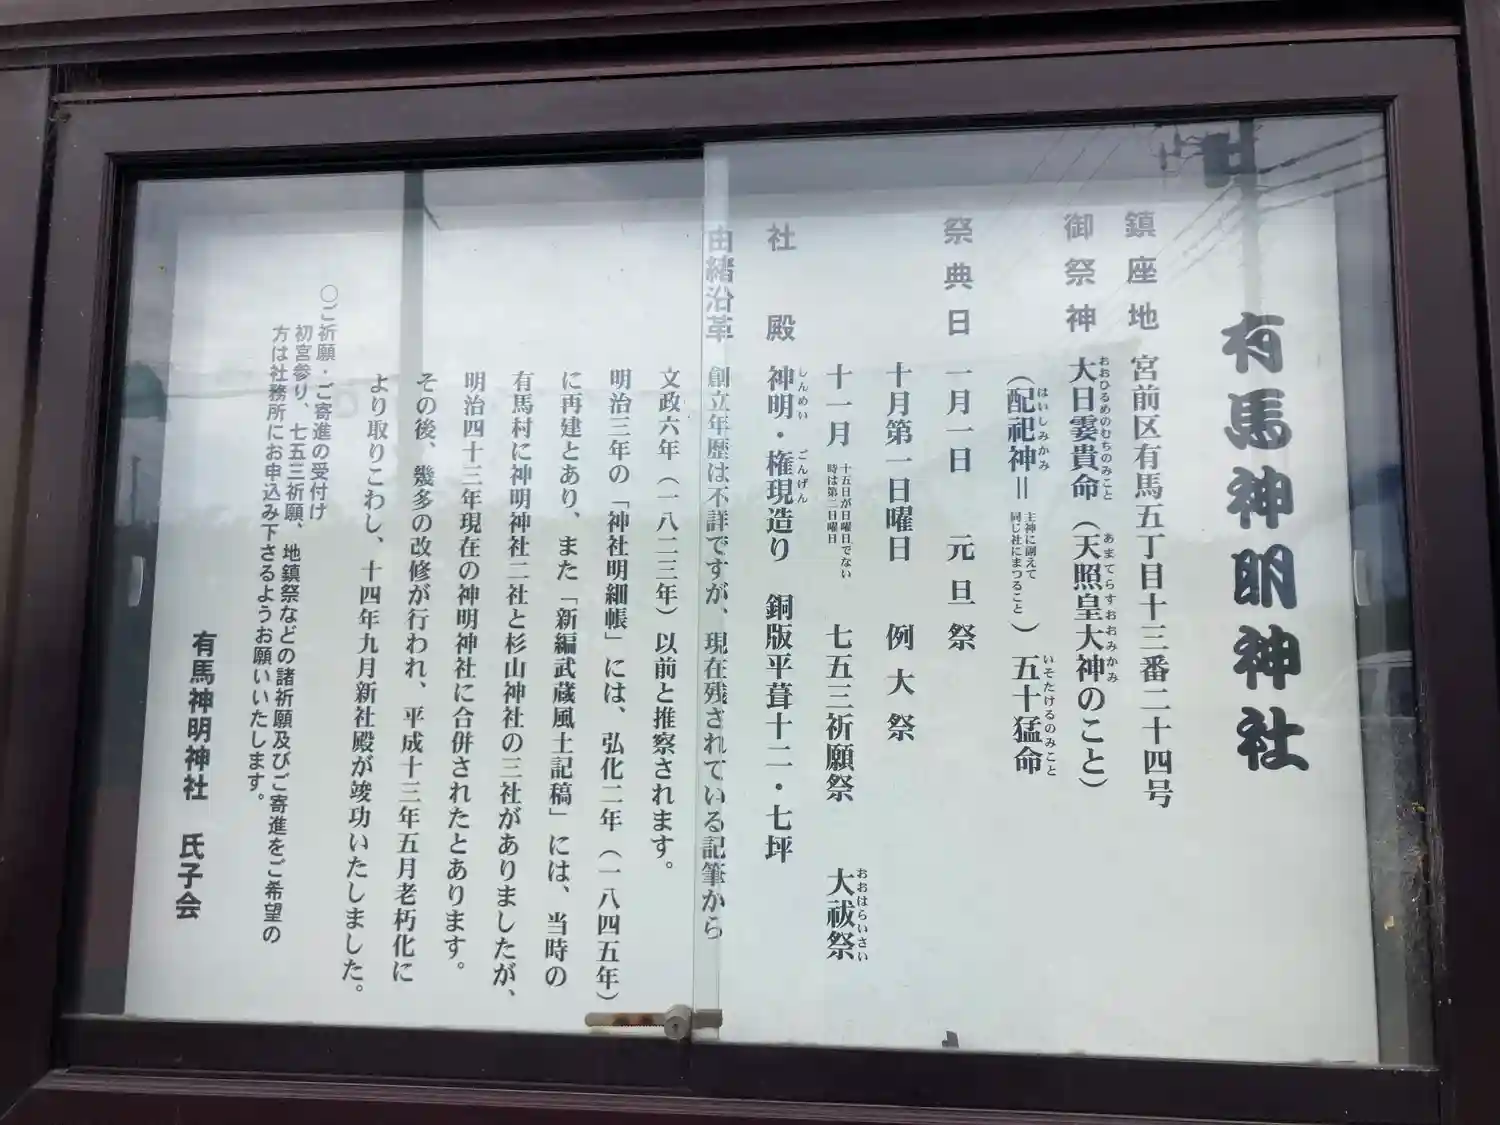 有馬神明神社
鎮座地 宮前区有馬五丁目十三番二十四号
御祭神 大日霎貴命（天照皇大神のこと）
おおひるめのむちのみこと あまてらすおおみかみ
（配祀神＝主神に副えて同じ社にまつること）五十猛命
はいしみかみ いそたけるのみこと
祭典日 一月一日 元旦祭
十月第一日曜日 例大祭
十一月 十五日が日曜日でない時は第二日曜日 七五三祈願祭 大祓祭
おおはらいさい
社殿 神明・権現造り 銅版平葺十二・七坪
しんめい ごんげん
由緒沿革 創立年歴は不詳ですが、現在残されている記筆から
文政六年（一八二三年）以前と推察されます。
明治三年の「神社明細帳」には、弘化二年（一八四五年）
に再建とあり、また「新編武蔵風土記稿」には、当時の
有馬村に神明神社二社と杉山神社の三社がありましたが、
明治四十三年現在の神明神社に合併されたとあります。
その後、幾多の改修が行われ、平成十三年五月老朽化に
より取りこわし、十四年九月新社殿が竣功いたしました。
〇ご祈願・ご寄進の受付け
初宮参り、七五三祈願、地鎮祭などの諸祈願及びご寄進をご希望の
方は社務所にお申込み下さるようお願いいたします。
有馬神明神社 氏子会